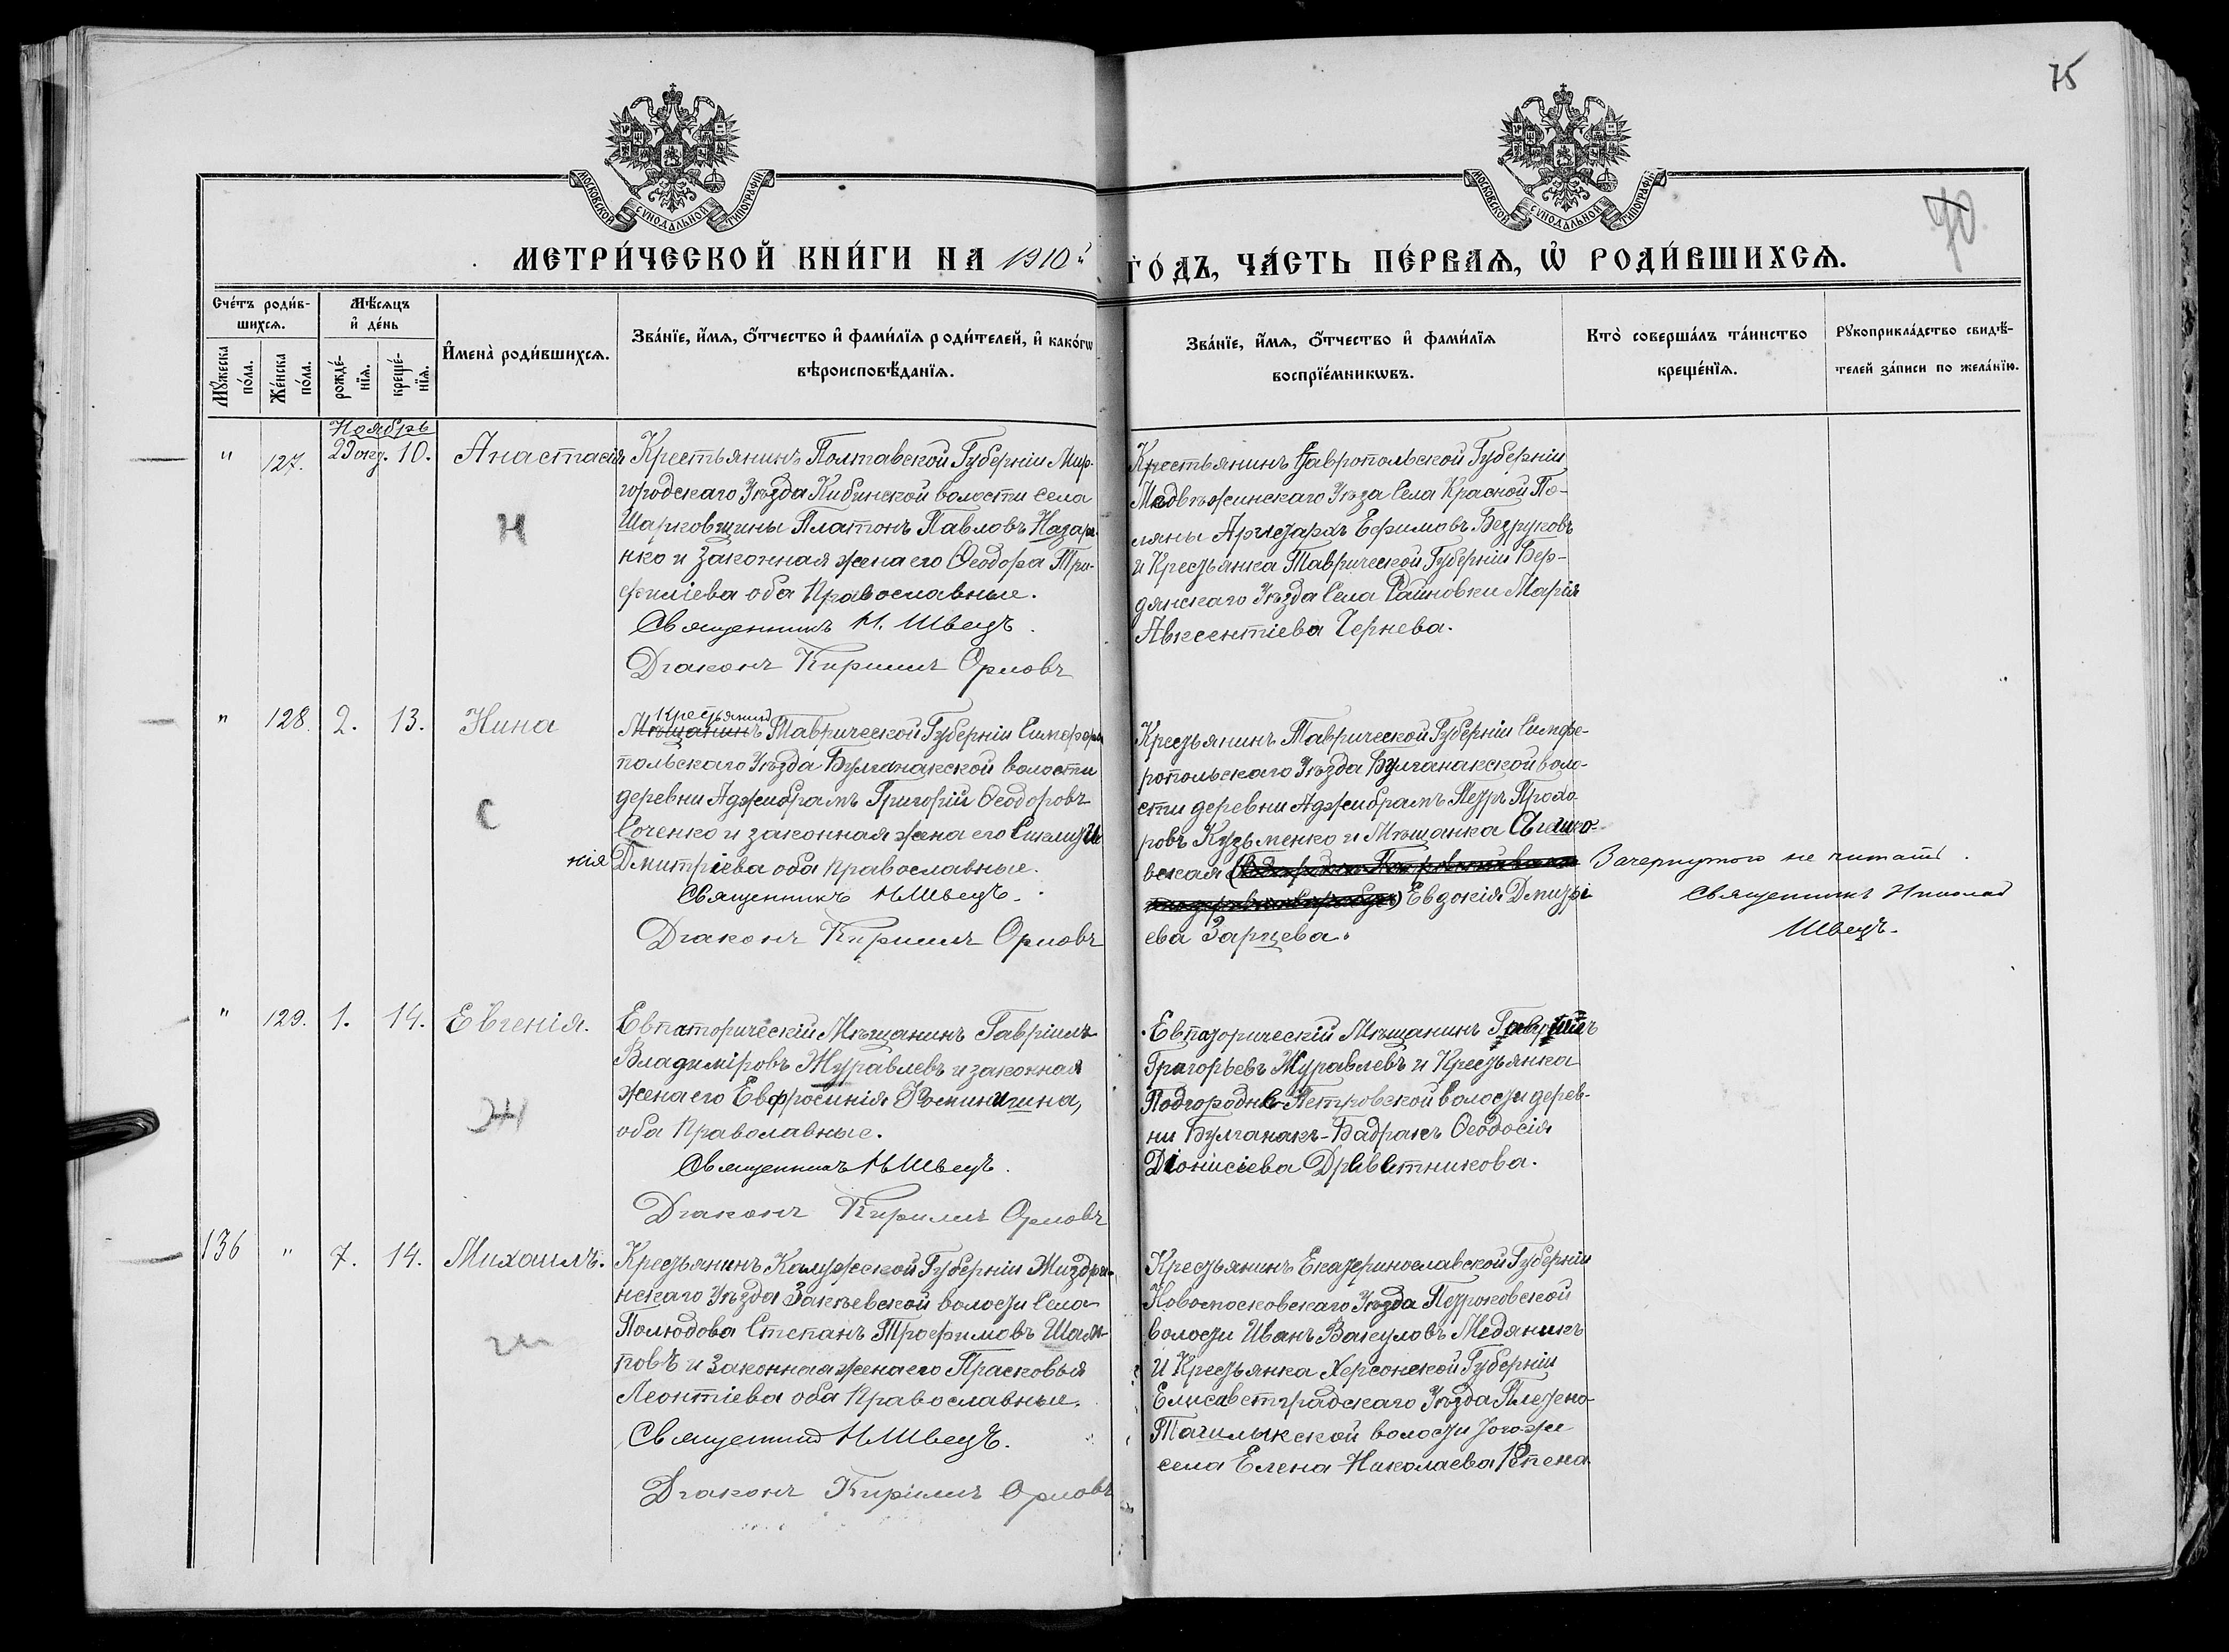 75
70
МОСКОВСКОЙ СѴНОДАЛЬНОЙ ТИПОГРАФІИ
МОСКОВСКОЙ СѴНОДАЛЬНОЙ ТИПОГРАФІИ
МЕТРИ́ЧЕСКОЙ КНИ́ГИ НА 1910й ГО́ДЪ, ЧА́СТЬ ПЕ́РВАѦ, Ѡ҆ РОДИ́ВШИХСѦ.
Сче́тъ роди́в-
шихсѧ.
Мꙋ́жеска по́ла.
Же́нска по́ла.
Мѣ́сѧцъ
и҆ де́нь
рожде́-
нїѧ.
креще́-
нїѧ.
И҆мена̀ роди́вшихсѧ.
Зва́нїе, и҆́мѧ, ѻ҆́тчество и҆ фами́лїѧ роди́телей, и҆ како́гѡ
вѣроисповѣ́данїѧ.
Зва́нїе, и҆́мѧ, ѻ҆́тчество и҆ фами́лїѧ
воспрїе́мникѡвъ.
Кто̀ соверша́лъ та́инство
креще́нїѧ.
Рꙋкоприкла́дство свидѣ́-
телей за́писи по жела́нїю.
Ноябрь
" 127. 29 окт. 10. Анастасія
Н
Крестьянинъ Полтавской Губерніи Мир-
городскаго Уѣзда Кибинской волости села
Шарковщины Платонъ Павловъ Назаре-
нко и законная жена его Ѳеодора Три-
филіева оба Православные.
Священникъ Н. Швецъ.
Діаконъ Кириллъ Орловъ
Крестьянинъ Ставропольской Губерніи
Медвѣжинскаго Уѣза Села Красной По-
ляны Аристархъ Ефимовъ Безруковъ
и Крестьянка Таврической Губерніи Бер-
дянскаго Уѣзда Села Райновки Марія
Авксентіева Чернева.
" 128. 2. 13. Нина
С
крестьянинъ
Мѣщанинъ Таврической Губерніи Симферо-
польскаго Уѣзда Булганакской волости
деревни Аджибрамъ Григорій Ѳеодоровъ
Соченко и законная жена его
нія Дмитріева оба православные.
Священникъ Н Швецъ.
Діаконъ Кириллъ Орловъ
Крестьянинъ Таврической Губерніи Симфе-
ропольскаго Уѣзда Булганакской воло-
сти деревни Аджибрамъ Петръ Прохо-
ровъ Кузьменко и Мѣщанка
Евдокія Дмитрі-
ева Зарцева.
Зачеркнутого не читать.
Священникъ Николай
Швецъ.
" 129. 1. 14. Евгенія.
Ж
Евпаторическій Мѣщанинъ Гавріилъ
Владиміровъ Журавлевъ и законная
жена его Евфросинія Фоминична,
оба Праволавные.
Священникъ Н Швецъ.
Діаконъ Кириллъ Орловъ
Евпаторическій Мѣщанинъ Гавріилъ
Григорьевъ Журавлевъ и Крестьянка
Подгородне-Петровской волости дерев-
ни Булганакъ-Бадракъ Ѳеодосія
Діонисіева Древетникова.
136 " 7. 14. Михаилъ.
Ш
Крестьянинъ Калужской Губерніи Жиздри-
нскаго Уѣзда Закѣевской волости Села
Полюдова Степанъ Трофимовъ
повъ и законная жена его Прасковья
Леонтіева оба Православные.
Священникъ Н Швецъ.
Діаконъ Кириллъ Орловъ
Крестьянинъ Екатеринославской Губерніи
Новомосковскаго Уѣзда Петриковской
волости Иванъ Вакуловъ Медяникъ
и Крестьянка Херсонской Губерніи
Елисаветградскаго Уѣзда Плетено-
Ташлыкской волости тогоже
села Елена Николаева Репена